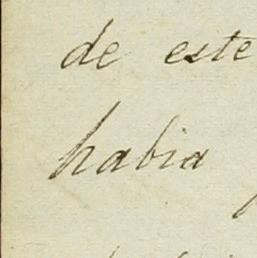 de este
habia